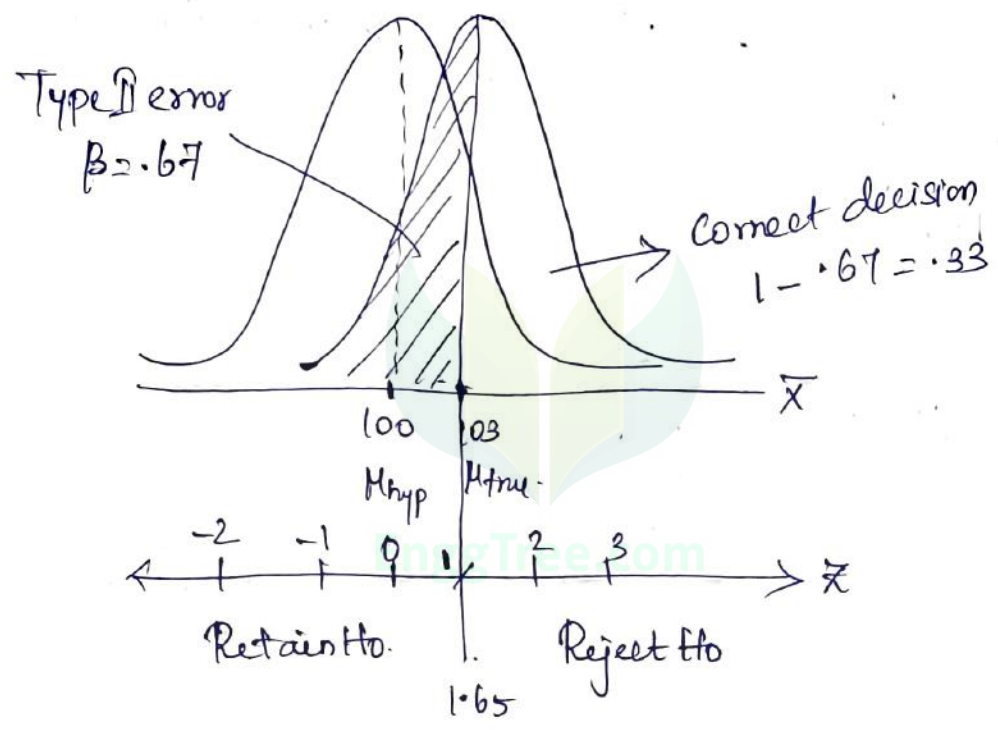 Type II error
β = .67
Correct decision
1 - .67 = .33
X̄
100 103
μhyp μtrue.
-2 -1 0 1 2 3 Z
EnggTree.com
Retain Ho. Reject Ho
1.65